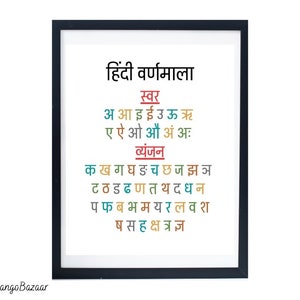 हिंदी वर्णमाला
स्वर
अ आ इ ई उ ऊ ऋ
ए ऐ ओ औ अं अः
व्यंजन
क ख ग घ ङ च छ ज झ ञ
ट ठ ड ढ ण त थ द ध न
प फ ब भ म य र ल व श
ष स ह क्ष त्र ज्ञ
angoBazaar